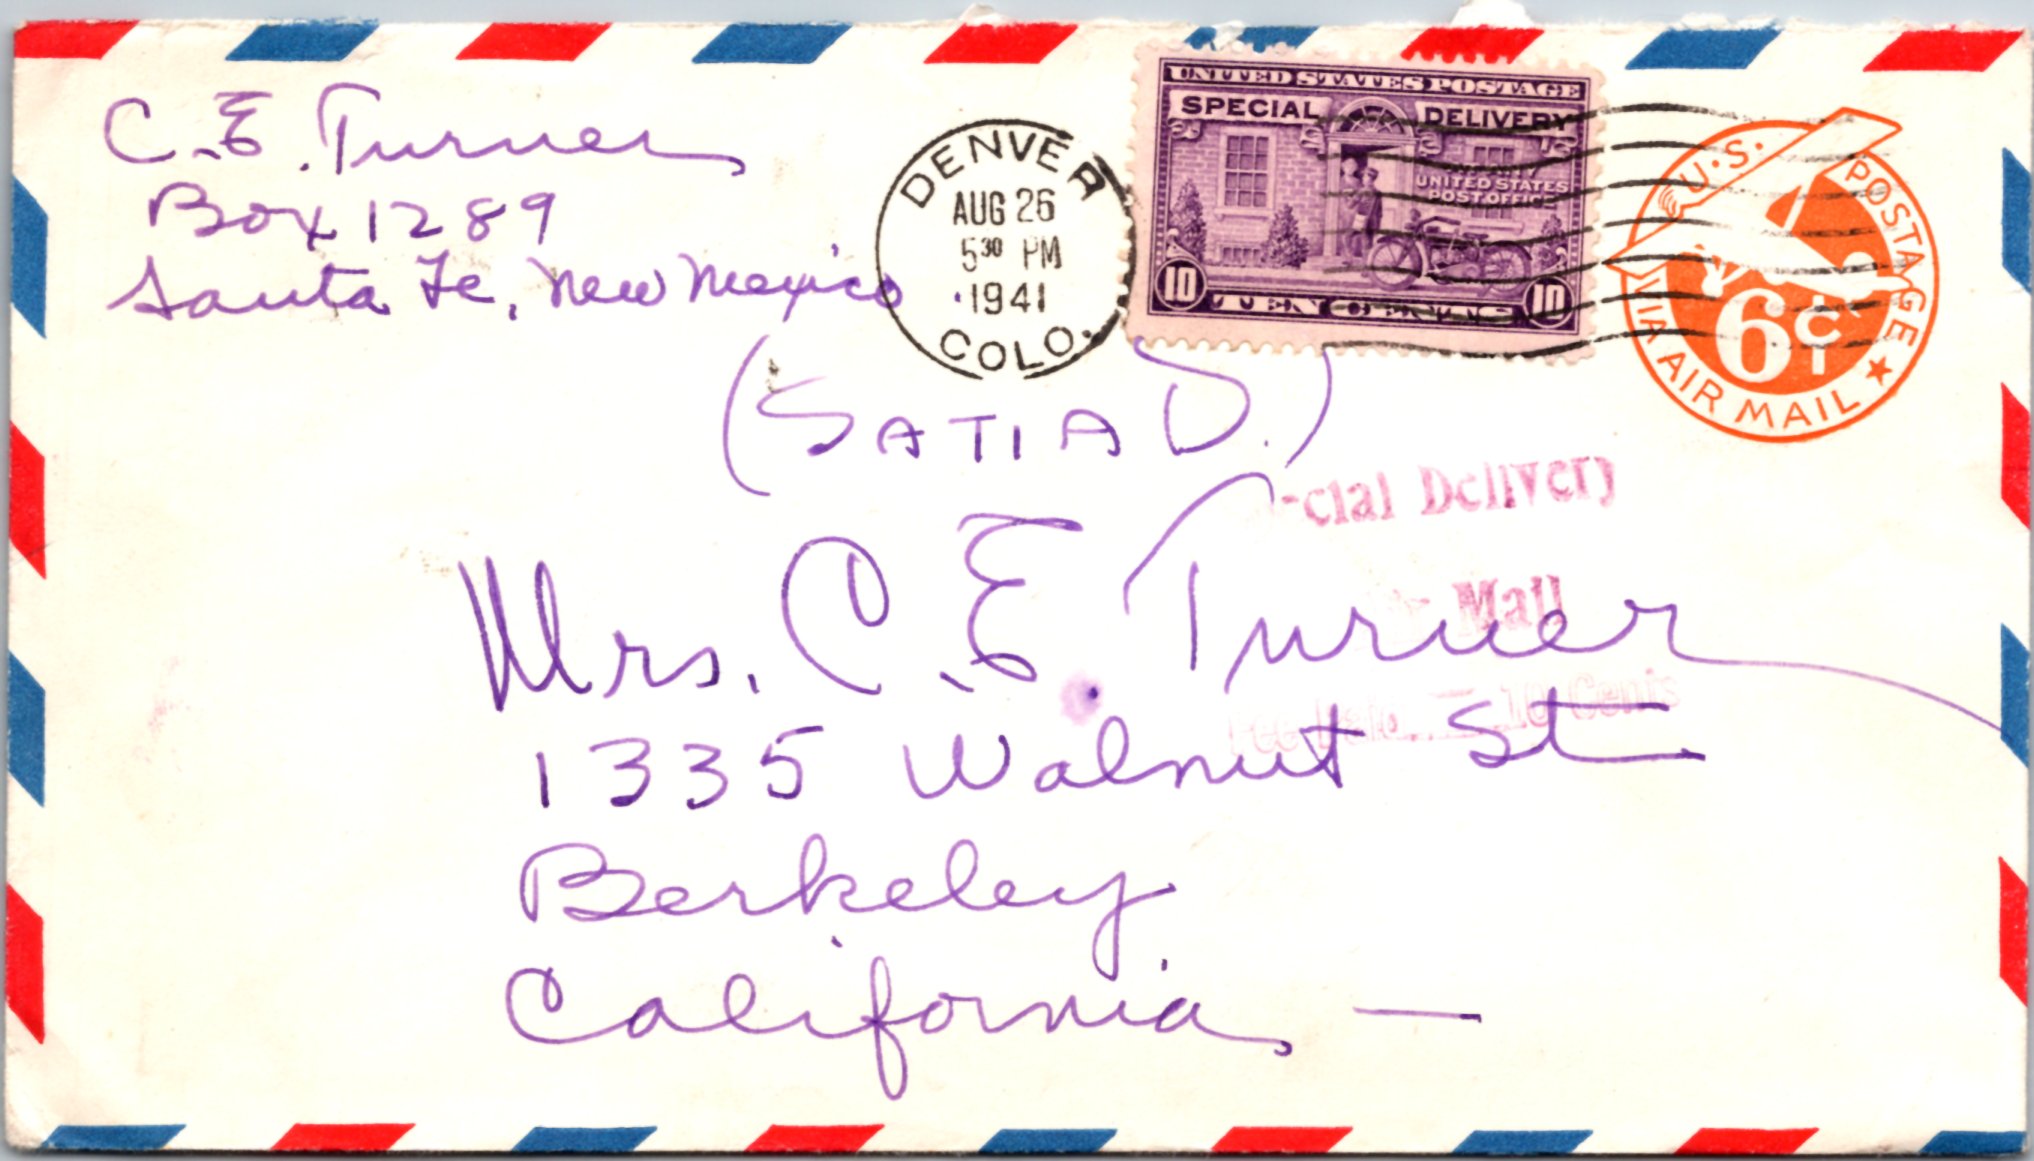 C.E. Turner
Box 1289
Santa Fe, New Mexico
DENVER
AUG 26
5 30 PM
1941
COLO.
UNITED STATES POSTAGE
SPECIAL DELIVERY
UNITED STATES
POST OFFICE
10 TEN CENTS 10
U.S. POSTAGE
6¢
VIA AIR MAIL
(SATIA D.)
cial Delivery
Mail
10 Cents
Mrs. C.E. Turner
1335 Walnut St
Berkeley
California —